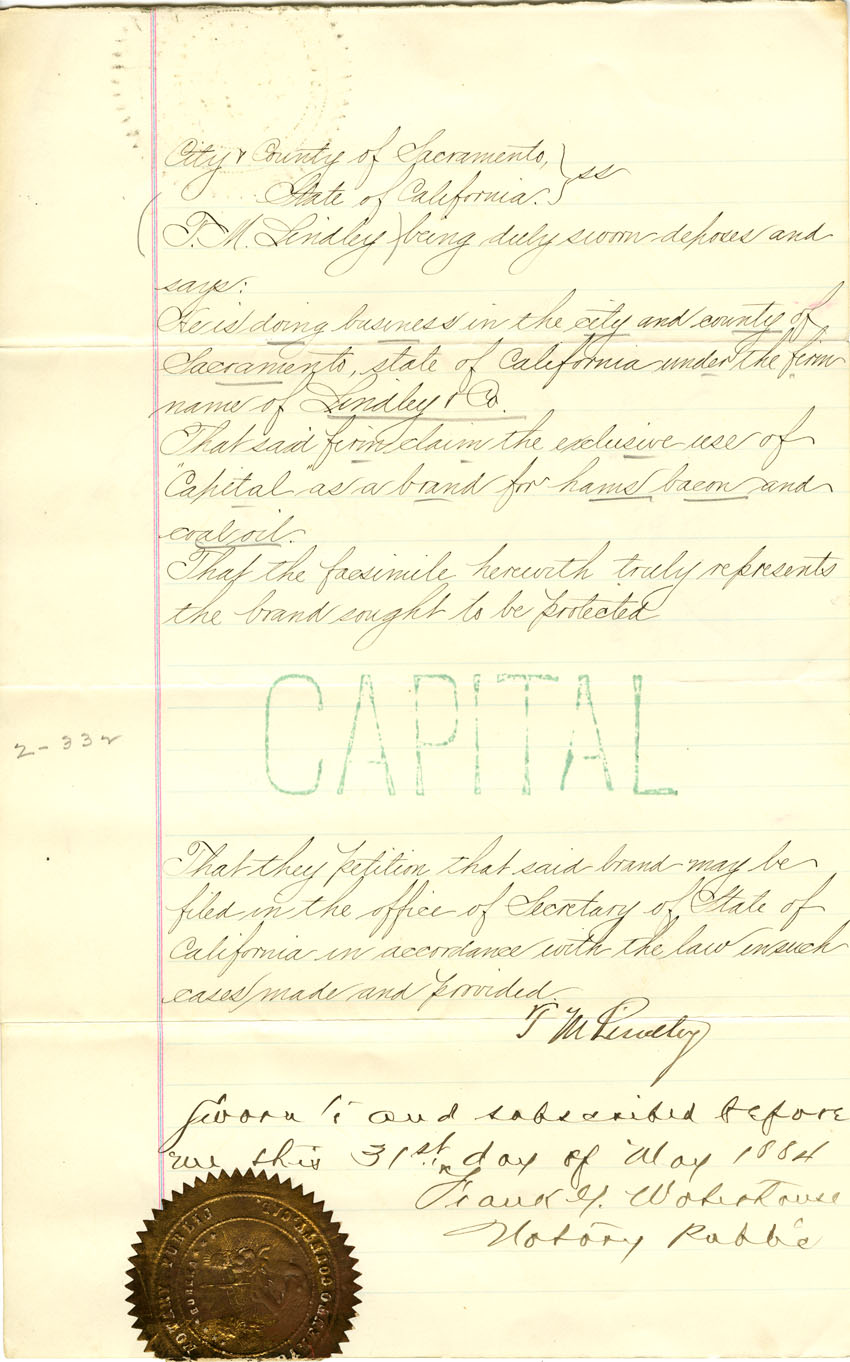 City & County of Sacramento, } ss
State of California. }
(T. M. Lindley) being duly sworn deposes and
says:
He is doing business in the city and county of
Sacramento, state of California under the firm
name of Lindley & Co.
That said firm claim the exclusive use of
"Capital" as a brand for hams, bacon and
coal oil.
That the facsimile herewith truly represents
the brand sought to be protected
CAPITAL
2-332
That they petition that said brand may be
filed in the office of Secretary of State of
California in accordance with the law in such
cases made and provided.
T M Lindley
Sworn to and subscribed before
me this 31st day of May 1884
Frank Waterhouse
Notary Public
NOTARY PUBLIC